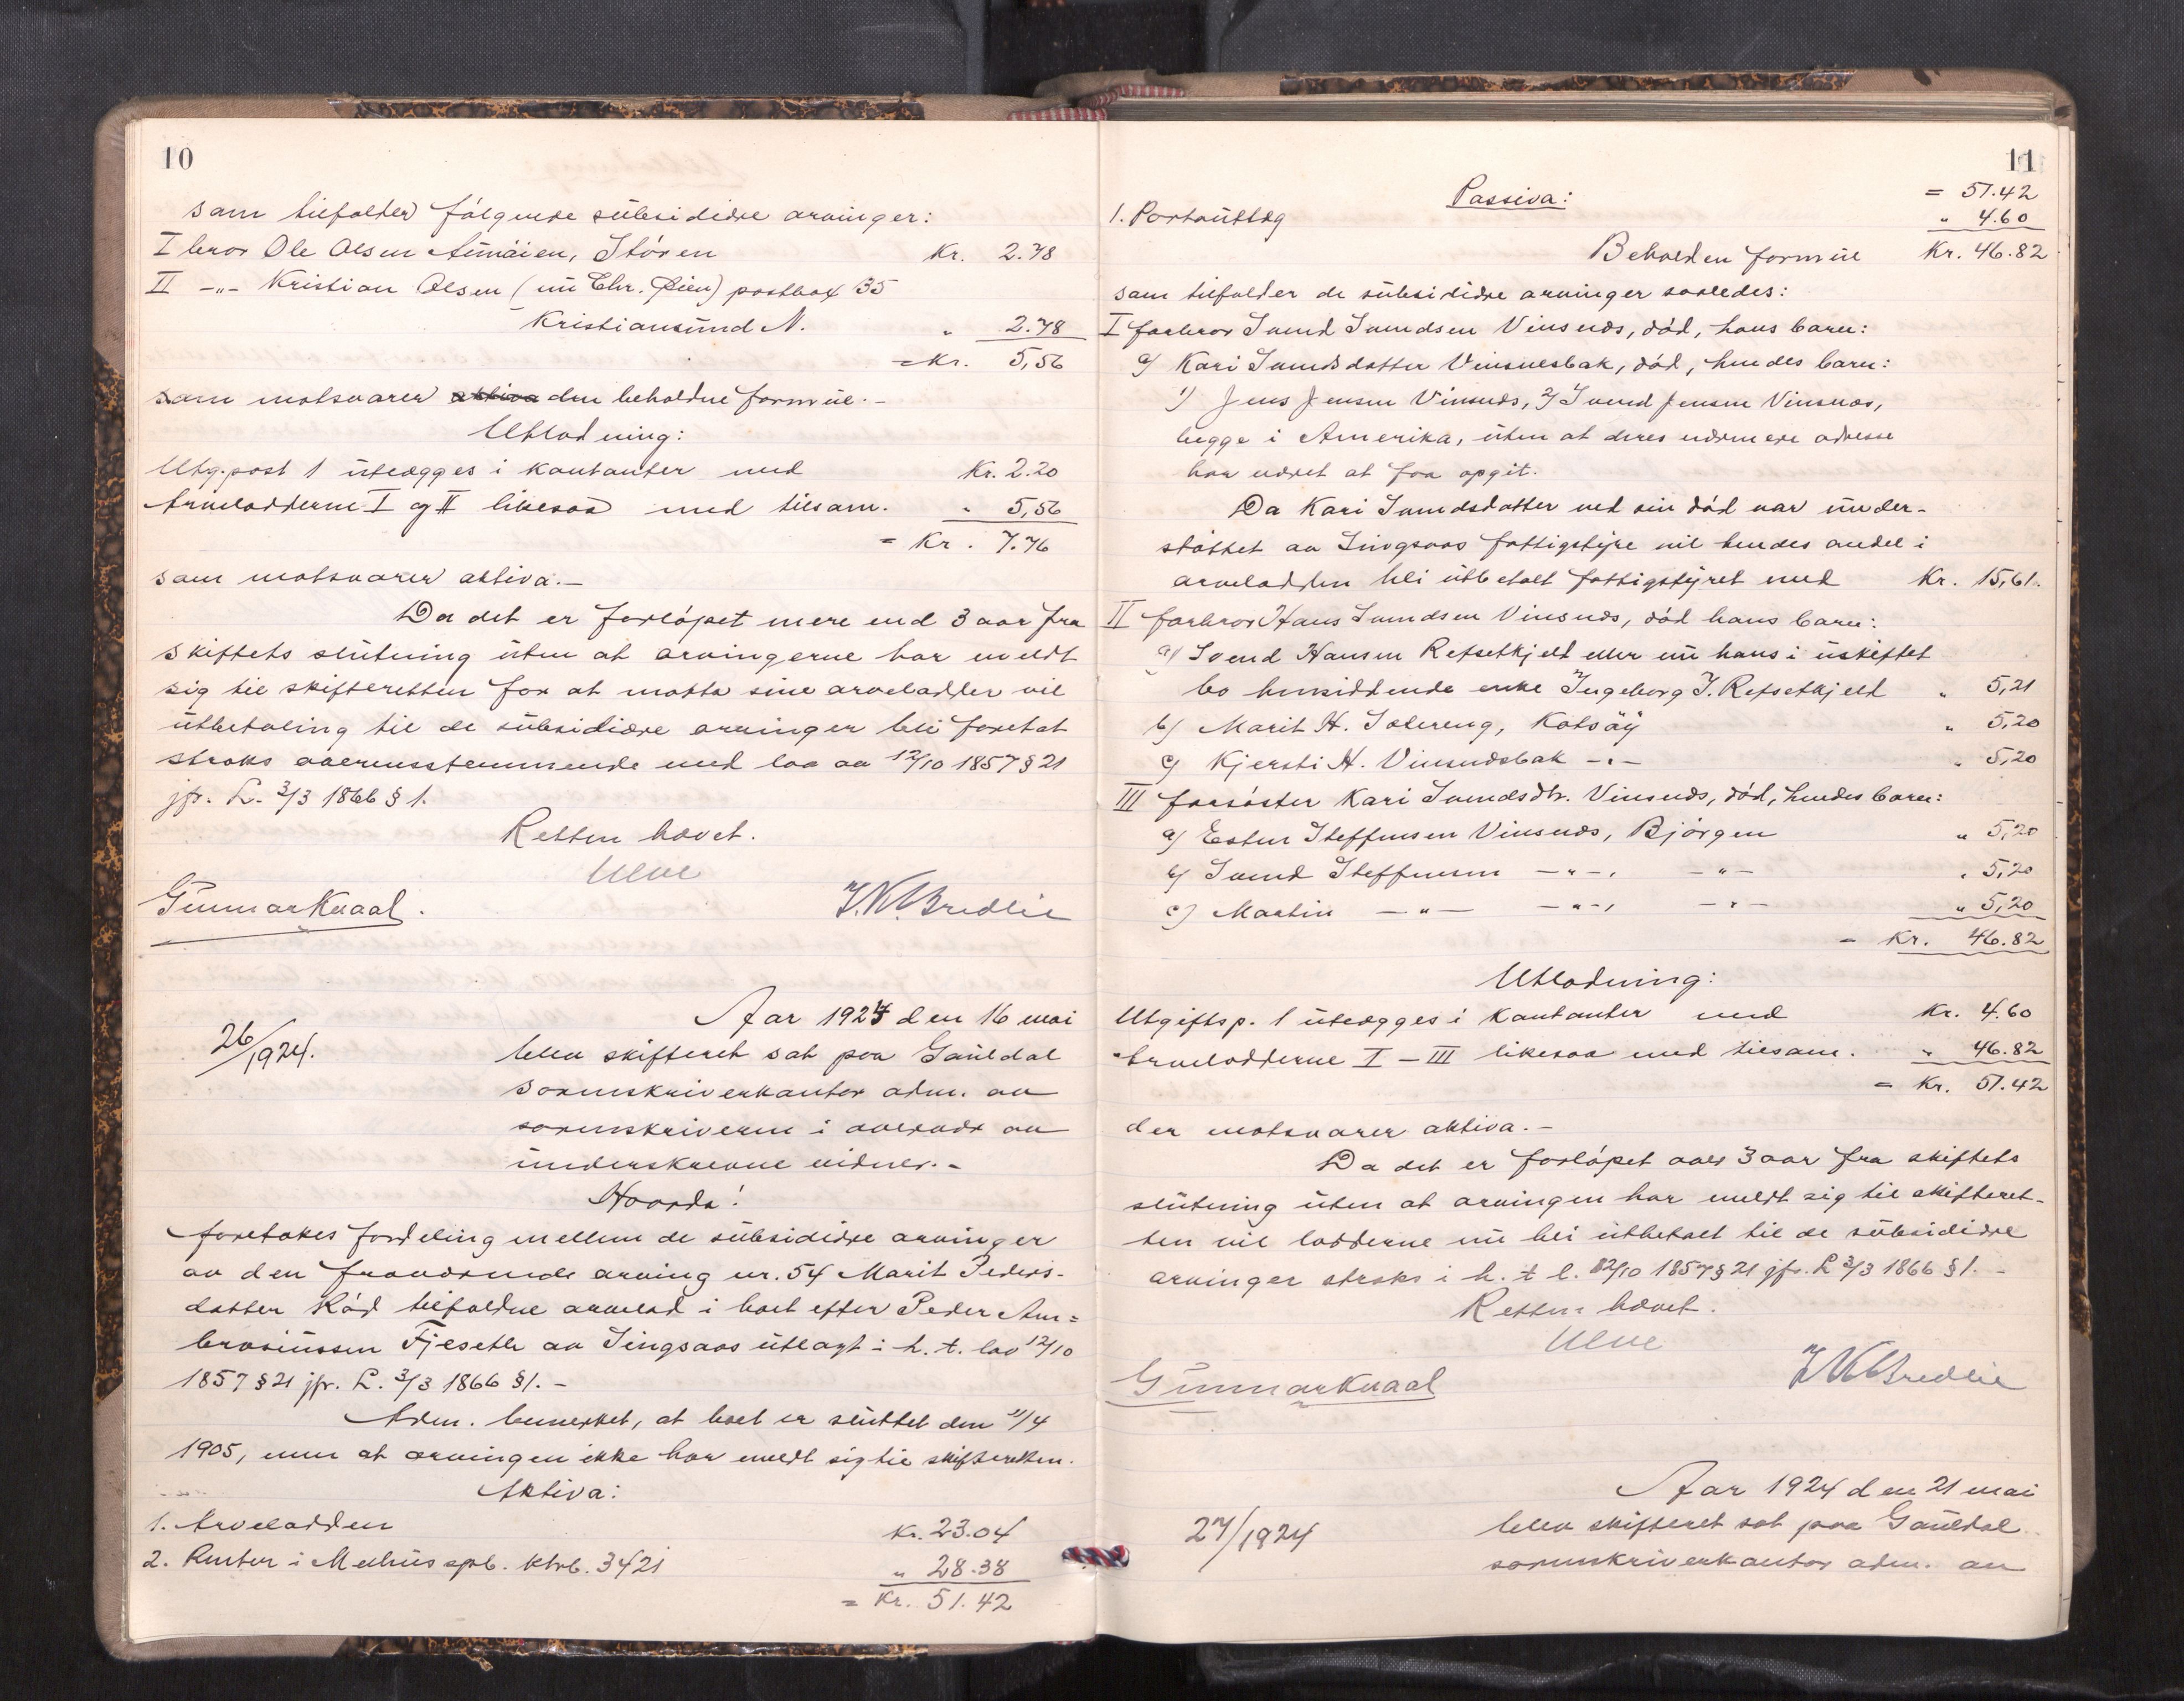 10
som tilfalder følgende subsidiære arvinger:
I bror Ole Olsen Aunøien, Støren Kr. 2.78
II -"- Kristian Olsen (nu Chr. Øien) postbox 35
Kristiansund N. " 2.78
= Kr. 5,56
som motsvarer aktiva den beholdne formue.-
Utlodning:
Utg.post 1 utlægges i kontanter med Kr. 2.20
Arvelodderne I og II likesaa med tilsam. " 5,56
= Kr. 7.76
som motsvarer aktiva.-
Da det er forløpet mere end 3 aar fra
skiftets slutning uten at arvingerne har meldt
sig til skifteretten for at motta sine arvelodder vil
utbetaling til de subsidiære arvinger bli foretat
straks overensstemmende med lov av 12/10 1857 § 21
jfr. L. 3/3 1866 § 1.
Retten hævet.
Ulve
Gunnar Kvaal. J.K. Bredlie
26/1924.
Aar 1924 den 16 mai
blev skifteret sat paa Gauldal
sorenskriverkontor adm. av
sorenskriveren i overvær av
underskrevne vidner.-
Hvorda!
foretokes fordeling mellem de subsidiære arvinger
av den fraværende arving nr. 54 Marit Peders-
datter Rød tilfaldne arvelod i boet efter Peder Am=
brosiussen Fjeseth av Singsaas utlagt i h. t. lov 12/10
1857 § 21 jfr. L. 3/3 1866 § 1.-
Adm. bemerket, at boet er sluttet den 11/4
1905, men at arvingen ikke har meldt sig til skifteretten.
Aktiva:
1. Arvelodden Kr. 23.04
2. Renter i Melhus spb. ktrb. 3421 " 28.38
= Kr. 51.42
11
= 51.42
Passiva:
1. Portoutlæg " 4.60
Beholden formue Kr. 46.82
som tilfalder de subsidiære arvinger saaledes:
I farbror Svend Svendsen Vinsnes, død, hans barn:
a) Kari Svendsdatter Vinsnesbak, død, hendes barn:
1) Jens Jensen Vinsnes, 2) Svend Jensen Vinsnes,
begge i Amerika, uten at deres nærmere adresse
har været at faa opgit.
Da Kari Svendsdatter ved sin død var under-
støttet av Singsaas fattigstyre vil hendes andel i
arvelodden bli utbetalt fattigstyret med Kr. 15,61.
II farbror Hans Svendsen Vinsnes, død hans barn:
a) Svend Hansen Refsetkjelt eller nu hans i uskiftet
bo hensiddende enke Ingeborg J. Refsetkjelt " 5,21
b) Marit H. Solereng, Kotsøy " 5,20
c) Kjersti H. Vinsnesbak -"- " 5,20
III farsøster Kari Svendsdtr. Vinsnes, død, hendes barn:
a) Esten Steffensen Vinsnes, Bjørgen " 5,20
b) Svend Steffensen -"-, -"- " 5,20
c) Martin -"- -"-, -"- " 5,20
= Kr. 46.82
Utlodning:
Utgiftsp. 1 utlægges i kontanter med Kr. 4.60
Arvelodderne I - III likesaa med tilsam. " 46.82
= Kr. 51.42
der motsvarer aktiva.-
Da det er forløpet over 3 aar fra skiftets
slutning uten at arvingen har meldt sig til skifteret-
ten vil lodderne nu bli utbetalt til de subsidiære
arvinger straks i h. t. l. 12/10 1857 § 21 jfr. L 3/3 1866 § 1.-
Retten hævet.
Ulve
Gunnar Kvaal J.K. Bredlie
27/1924
Aar 1924 den 21 mai
blev skifteret sat paa Gauldal
sorenskriverkontor adm. av